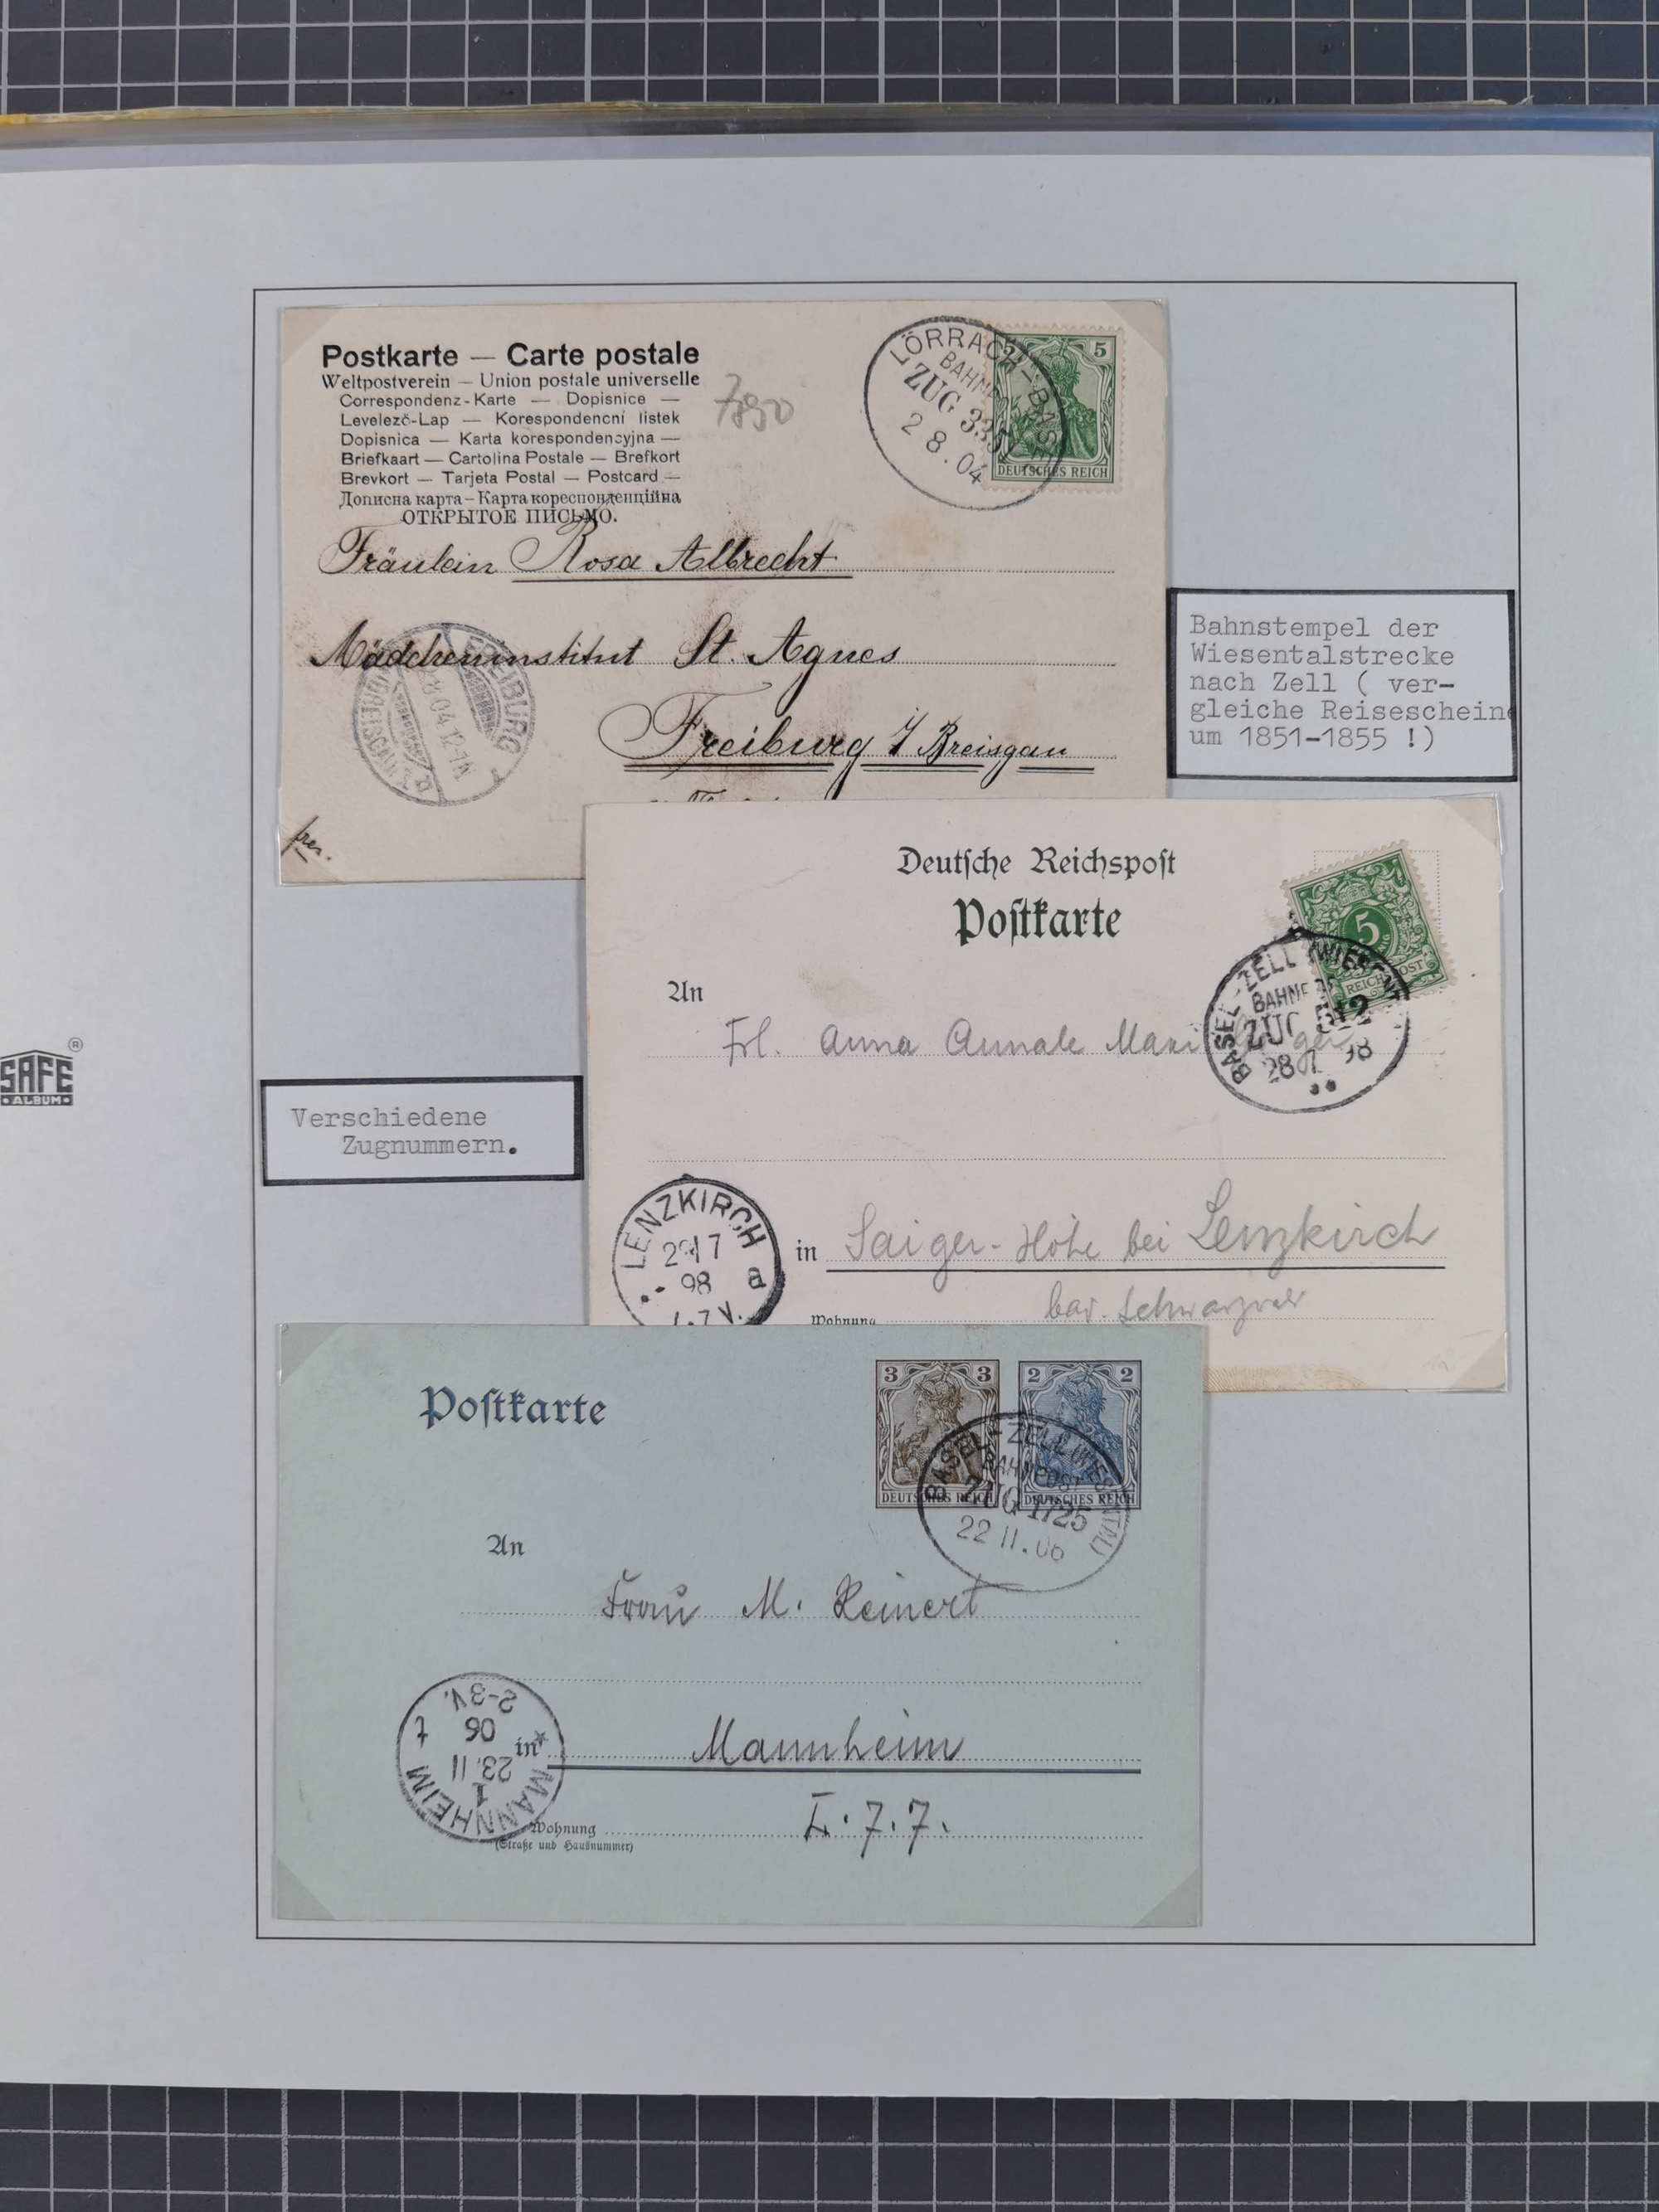 Postkarte — Carte postale
Weltpostverein — Union postale universelle
Correspondenz-Karte — Dopisnice —
Levelező-Lap — Korespondencní listek
Dopisnica — Karta korespondencyjna —
Briefkaart — Cartolina Postale — Brefkort
Brevkort — Tarjeta Postal — Postcard —
Дописна карта – Карта кореспонденційна
ОТКРЫТОЕ ПИСЬМО.
7890
LÖRRACH - BASEL
BAHN
ZUG 335
2 8. 04
5 5
DEUTSCHES REICH
Fräulein Rosa Albrecht
Mädcheninstitut St. Agnes
Freiburg i/Breisgau
FREIBURG
8.04.12-1N
Bahnstempel der
Wiesentalstrecke
nach Zell ( ver-
gleiche Reisescheine
um 1851-1855 !)
Deutsche Reichspost
Postkarte
5
REICHSPOST
BASEL - ZELL (WIESENT
BAHNP
ZUG 512
28 7 98
An
Frl. Anna
SAFE
ALBUM
®
Verschiedene
Zugnummern.
LENZKIRCH
29/7
98 a
.-7 V.
in Saiger-Höhe bei Lenzkirch
Wohnung bad. Schwarzwald
Postkarte
3 3
DEUTSCHES REICH
2 2
DEUTSCHES REICH
BASEL - ZELL (WIESENTAL)
BAHNPOST
ZUG 1725
22 11. 06
An
Frau M. Reinert
in Mannheim
MANNHEIM
1
23.11
06
2-3V.
Wohnung
(Straße und Hausnummer)
L. 7. 7.